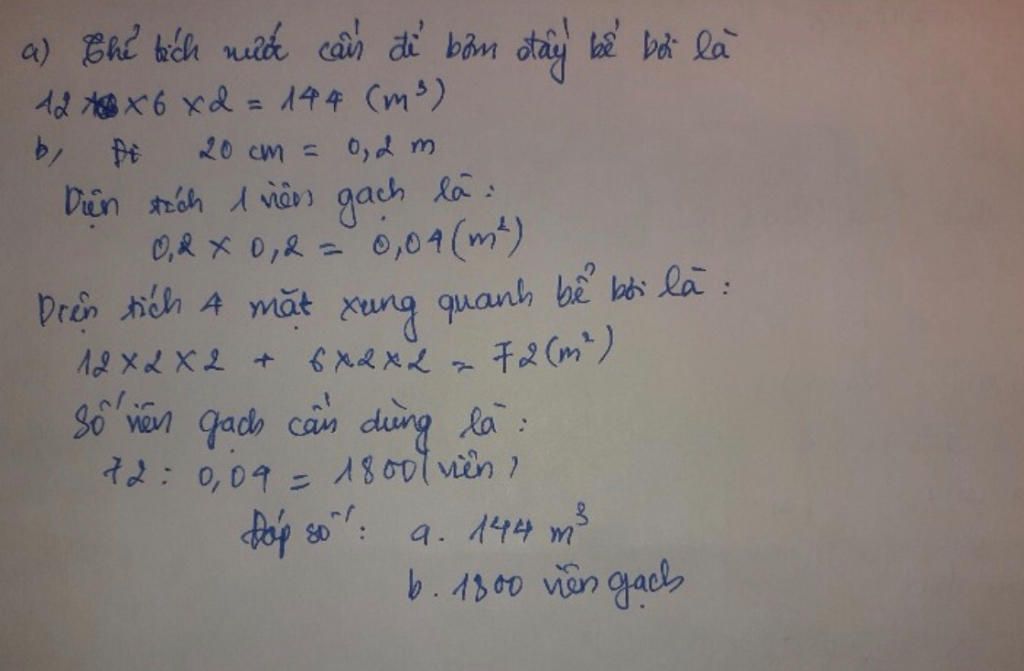 a) Thể tích nước cần để bơm đầy bể bơi là
12 x 6 x 2 = 144 (m³)
b, Đổi 20 cm = 0,2 m
Diện tích 1 viên gạch là:
0,2 x 0,2 = 0,04 (m²)
Diện tích 4 mặt xung quanh bể bơi là:
12 x 2 x 2 + 6 x 2 x 2 = 72 (m²)
Số viên gạch cần dùng là:
72 : 0,04 = 1800 (viên)
Đáp số: a. 144 m³
b. 1800 viên gạch